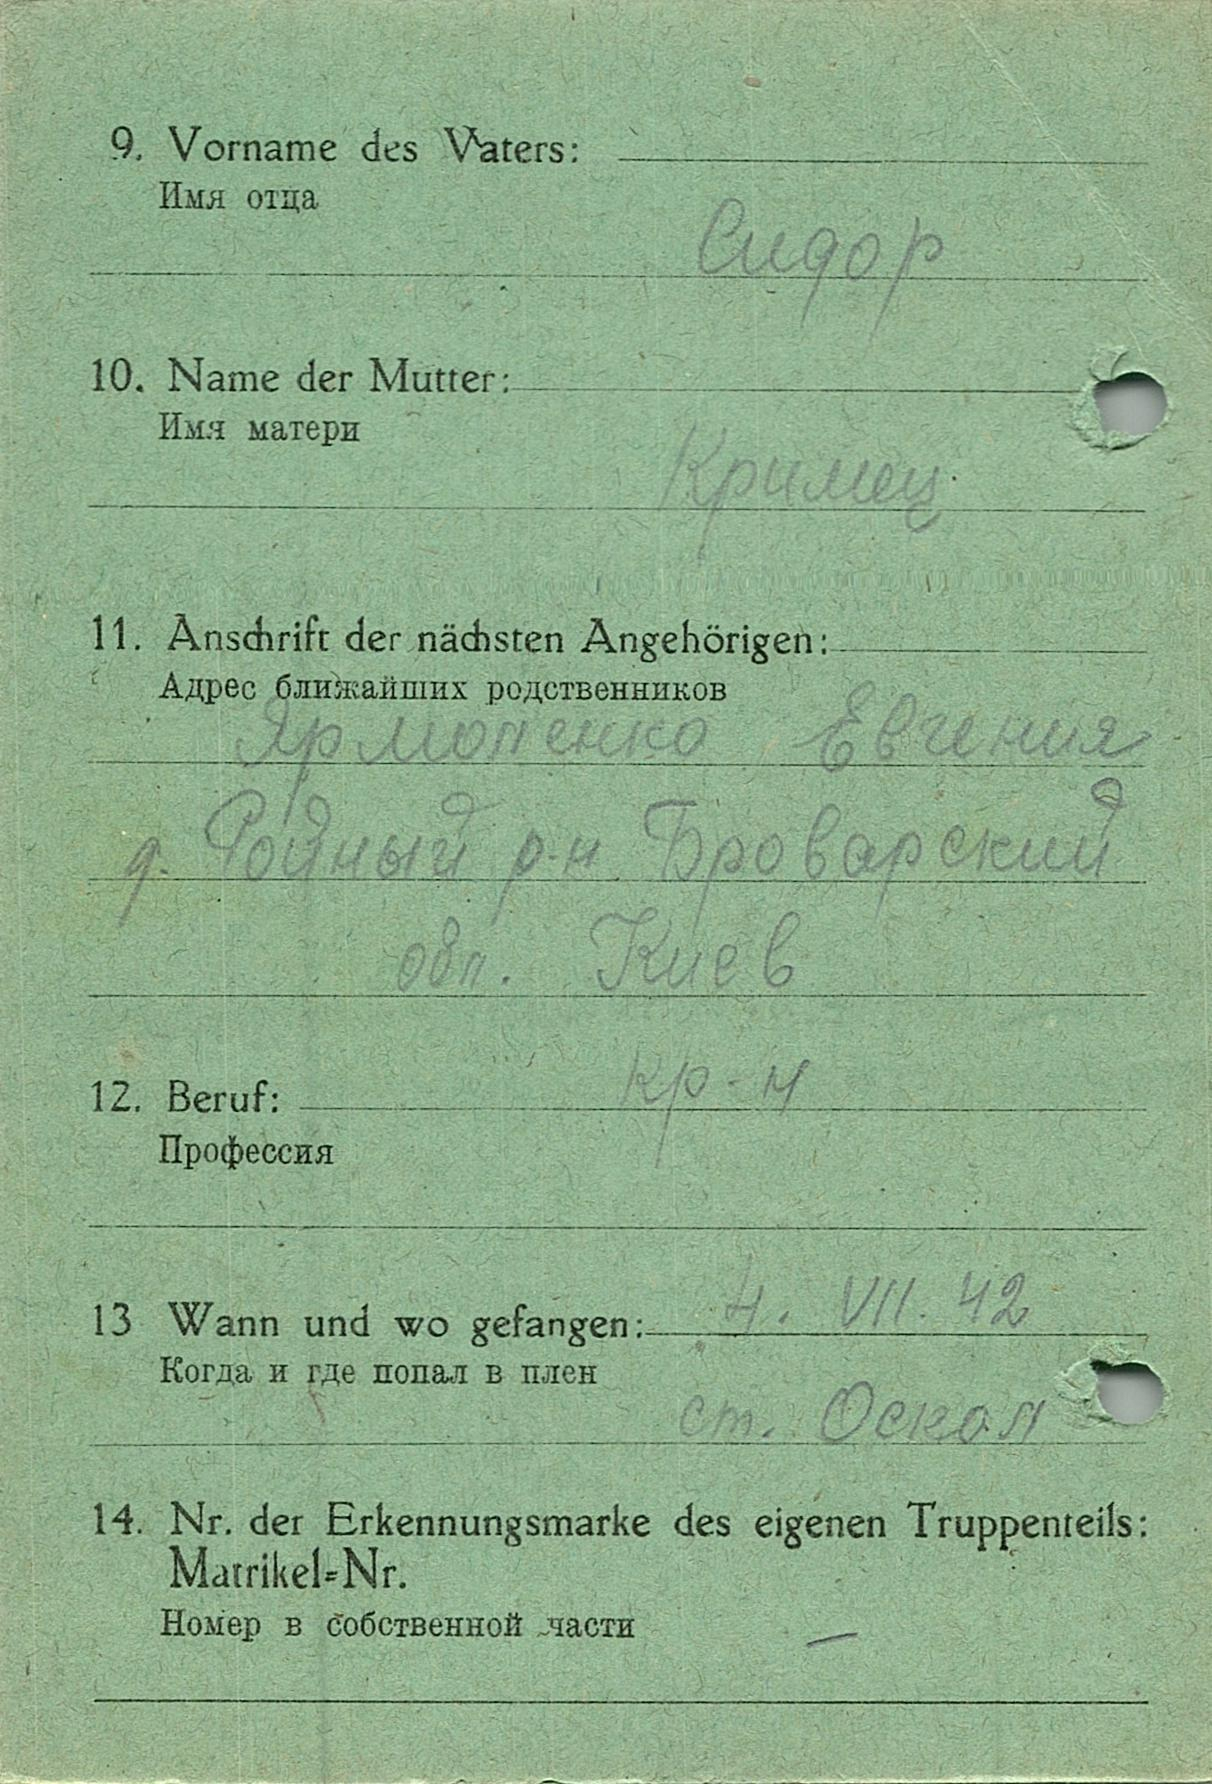 9. Vorname des Vaters:
Имя отца
Сидор
10. Name der Mutter:
Имя матери
Кримец
11. Anschrift der nächsten Angehörigen:
Адрес ближайших родственников
Ярмопенко Евгения
д. Ройный р-н Броварский
обл. Киев
12. Beruf: кр-н
Профессия
13 Wann und wo gefangen: 4. VII. 42
Когда и где попал в плен
ст. Оскол
14. Nr. der Erkennungsmarke des eigenen Truppenteils:
Matrikel=Nr.
Номер в собственной части
—